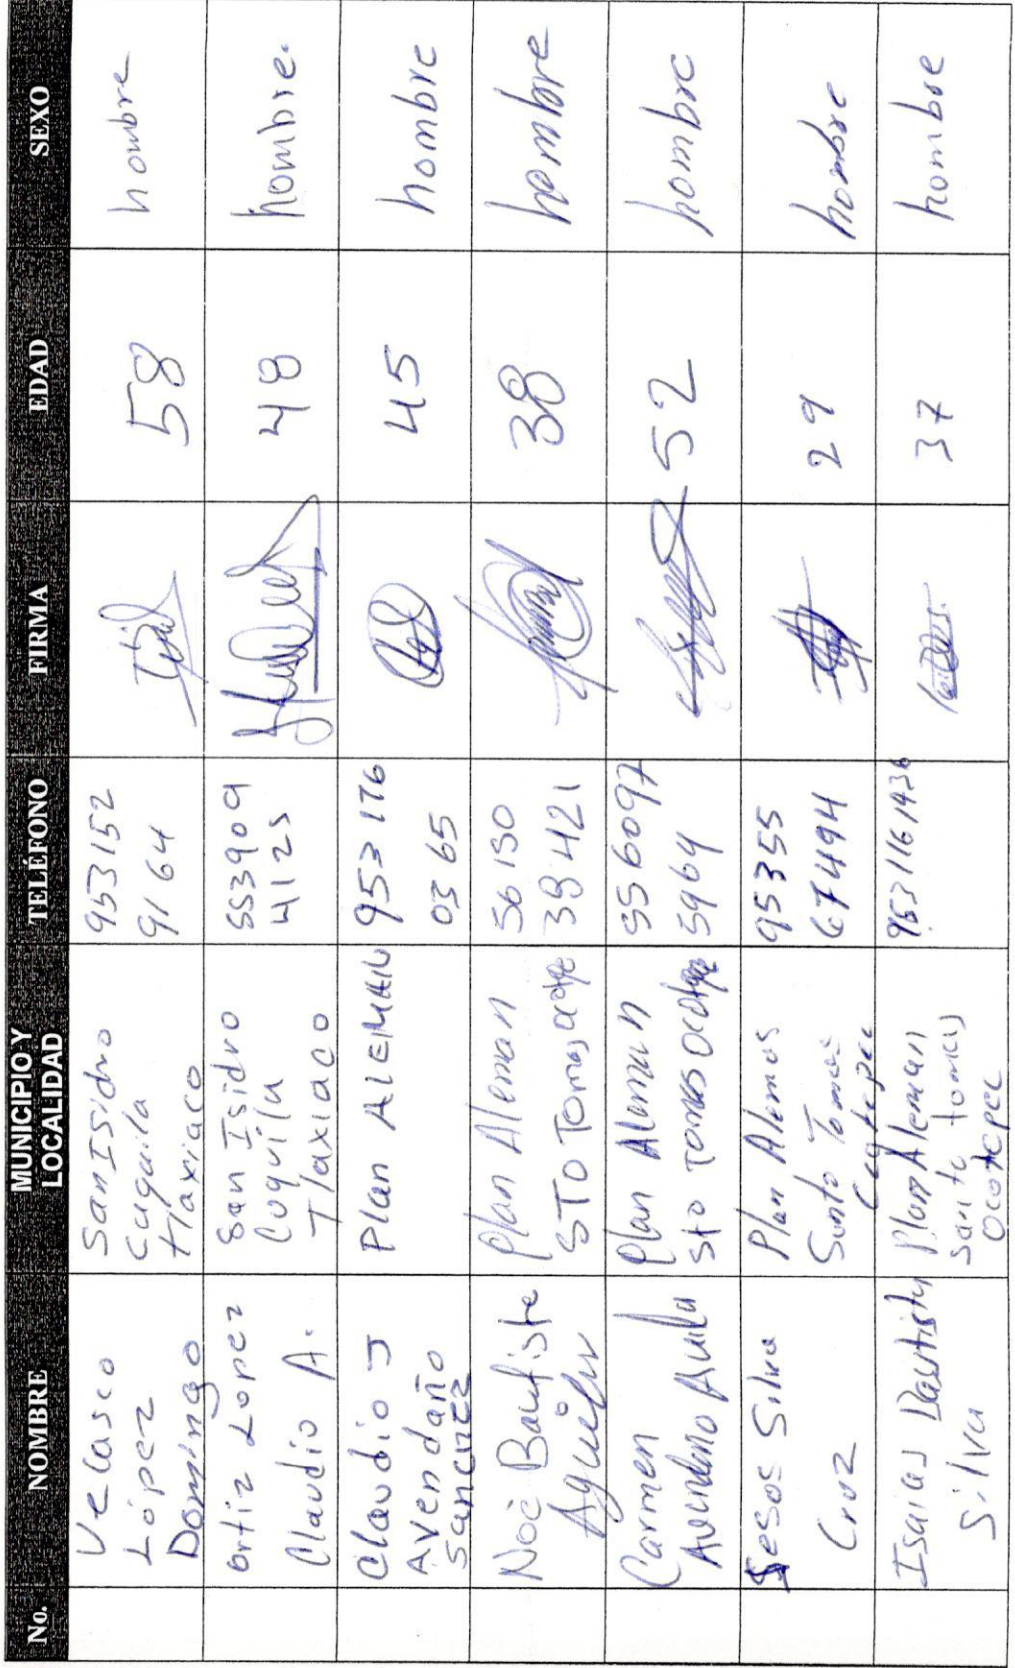 No. NOMBRE MUNICIPIO Y LOCALIDAD TELÉFONO FIRMA EDAD SEXO
Velasco López Domingo San Isidro Cuquila tlaxiaco 953152 9164 58 hombre
Ortiz Lopez Claudio A. San Isidro Cuquila Tlaxiaco 553909 4125 48 hombre.
Claudio J Avendaño Plan ALEMAN 953 176 03 65 45 hombre
Noè Bautista Aguilar Plan Aleman STO Tomas 56 130 38421 38 hombre
Carmen Avendaño Plan Aleman sto Tomas 556097 5964 52 hombre
Jesos Silva Cruz Plan Aleman Santo Tomas 95355 67494 29 hombre
Isaias Bautista Silva Plan Aleman santo tomas Ocotepec 37 hombre